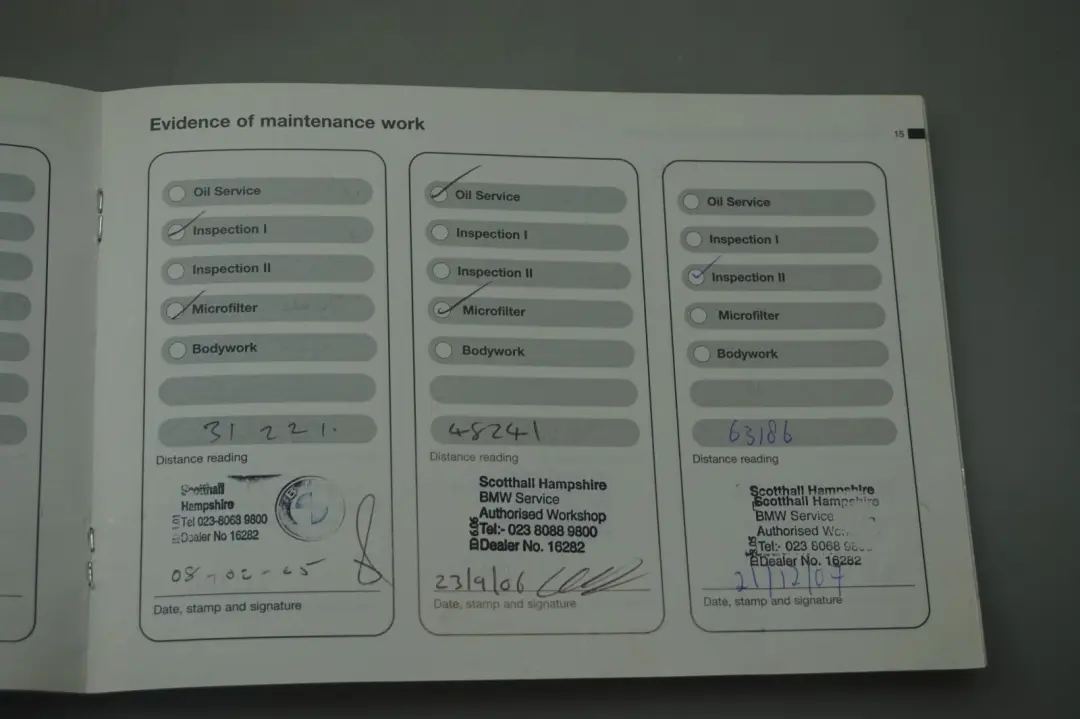 Evidence of maintenance work
15
Oil Service
Inspection I
Inspection II
Microfilter
Bodywork
31 221.
Distance reading
Scotthall
Hampshire
Tel 023-8068 9800
Dealer No 16282
08-02-05
Date, stamp and signature
Oil Service
Inspection I
Inspection II
Microfilter
Bodywork
48241
Distance reading
Scotthall Hampshire
BMW Service
Authorised Workshop
Tel:- 023 8088 9800
Dealer No. 16282
23/9/06
Date, stamp and signature
Oil Service
Inspection I
Inspection II
Microfilter
Bodywork
63186
Distance reading
Scotthall Hampshire
Scotthall Hampshire
BMW Service
Authorised
Tel:- 023 8068
Dealer No. 16282
21/12/07
Date, stamp and signature